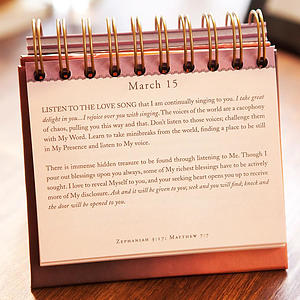 March 15
LISTEN TO THE LOVE SONG that I am continually singing to you. I take great
delight in you...I rejoice over you with singing. The voices of the world are a cacophony
of chaos, pulling you this way and that. Don't listen to those voices; challenge them
with My Word. Learn to take minibreaks from the world, finding a place to be still
in My Presence and listen to My voice.
There is immense hidden treasure to be found through listening to Me. Though I
pour out blessings upon you always, some of My richest blessings have to be actively
sought. I love to reveal Myself to you, and your seeking heart opens you up to receive
more of My disclosure. Ask and it will be given to you; seek and you will find; knock and
the door will be opened to you.
Zephaniah 3:17; Matthew 7:7